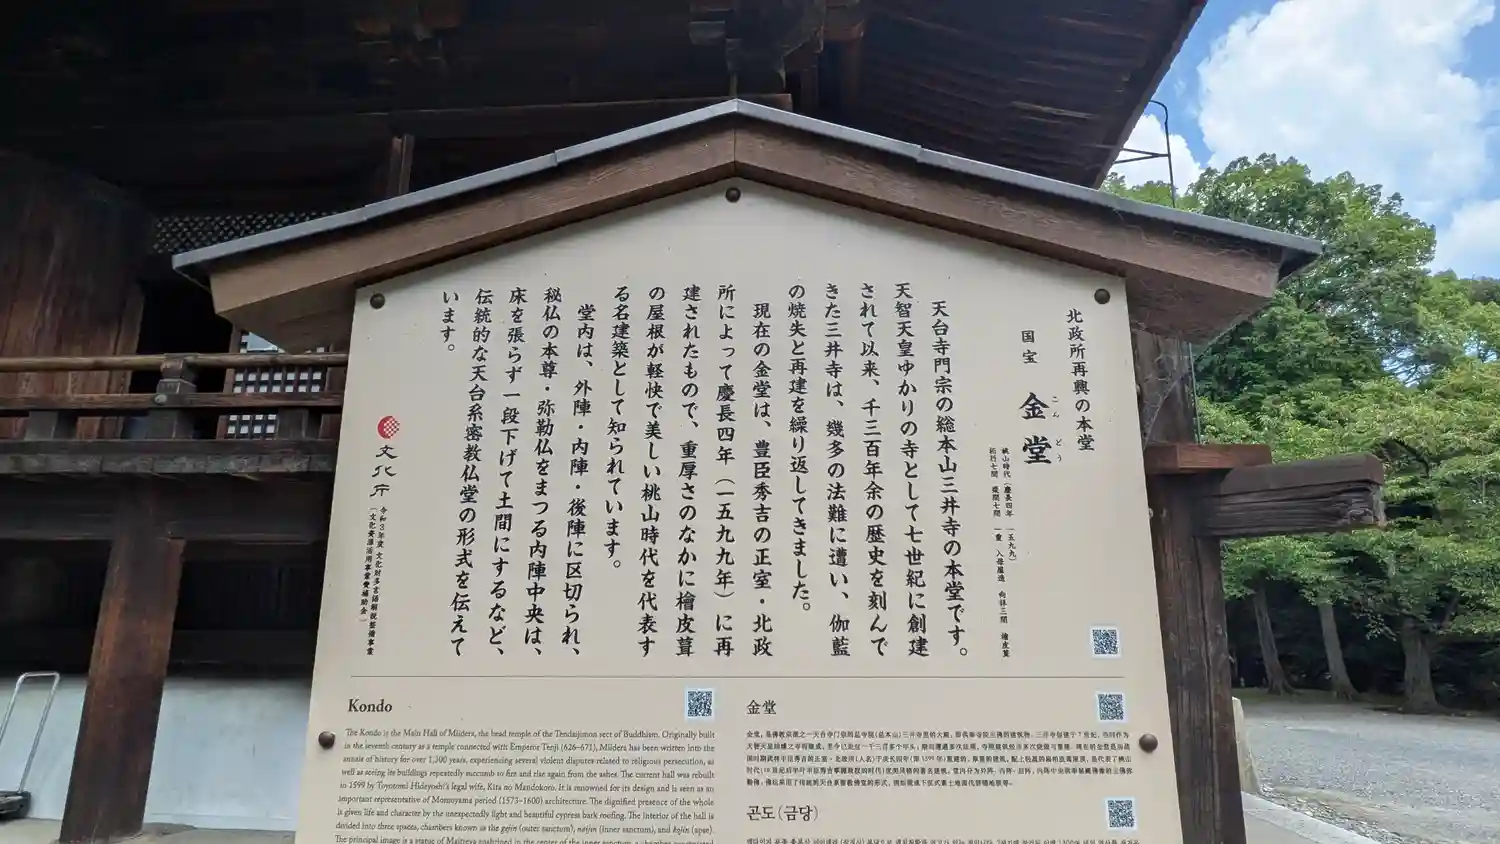 北政所再興の本堂
国宝 金堂
こんどう
桃山時代(慶長四年 一五九九)
桁行七間 梁間七間 一重 入母屋造 向拝三間 檜皮葺
天台寺門宗の総本山三井寺の本堂です。
天智天皇ゆかりの寺として七世紀に創建
されて以来、千三百年余の歴史を刻んで
きた三井寺は、幾多の法難に遭い、伽藍
の焼失と再建を繰り返してきました。
現在の金堂は、豊臣秀吉の正室・北政
所によって慶長四年(一五九九年)に再
建されたもので、重厚さのなかに檜皮葺
の屋根が軽快で美しい桃山時代を代表す
る名建築として知られています。
堂内は、外陣・内陣・後陣に区切られ、
秘仏の本尊・弥勒仏をまつる内陣中央は、
床を張らず一段下げて土間にするなど、
伝統的な天台系密教仏堂の形式を伝えて
います。
文化庁
令和3年度 文化財多言語解説整備事業
(文化資源活用事業費補助金)
Kondo
The Kondo is the Main Hall of Miidera, the head temple of the Tendaijimon sect of Buddhism. Originally built
in the seventh century as a temple connected with Emperor Tenji (626–671), Miidera has been written into the
annals of history for over 1,300 years, experiencing several violent disputes related to religious persecution, as
well as seeing its buildings repeatedly succumb to fire and rise again from the ashes. The current hall was rebuilt
in 1599 by Toyotomi Hideyoshi's legal wife, Kita no Mandokoro. It is renowned for its design and is seen as an
important representative of Momoyama period (1573–1600) architecture. The dignified presence of the whole
is given life and character by the unexpectedly light and beautiful cypress bark roofing. The interior of the hall is
divided into three spaces, chambers known as the gejin (outer sanctum), naijin (inner sanctum), and kojin (apse).
The principal image is a statue of Maitreya enshrined in the center of the inner sanctum,
金堂
곤도 (금당)